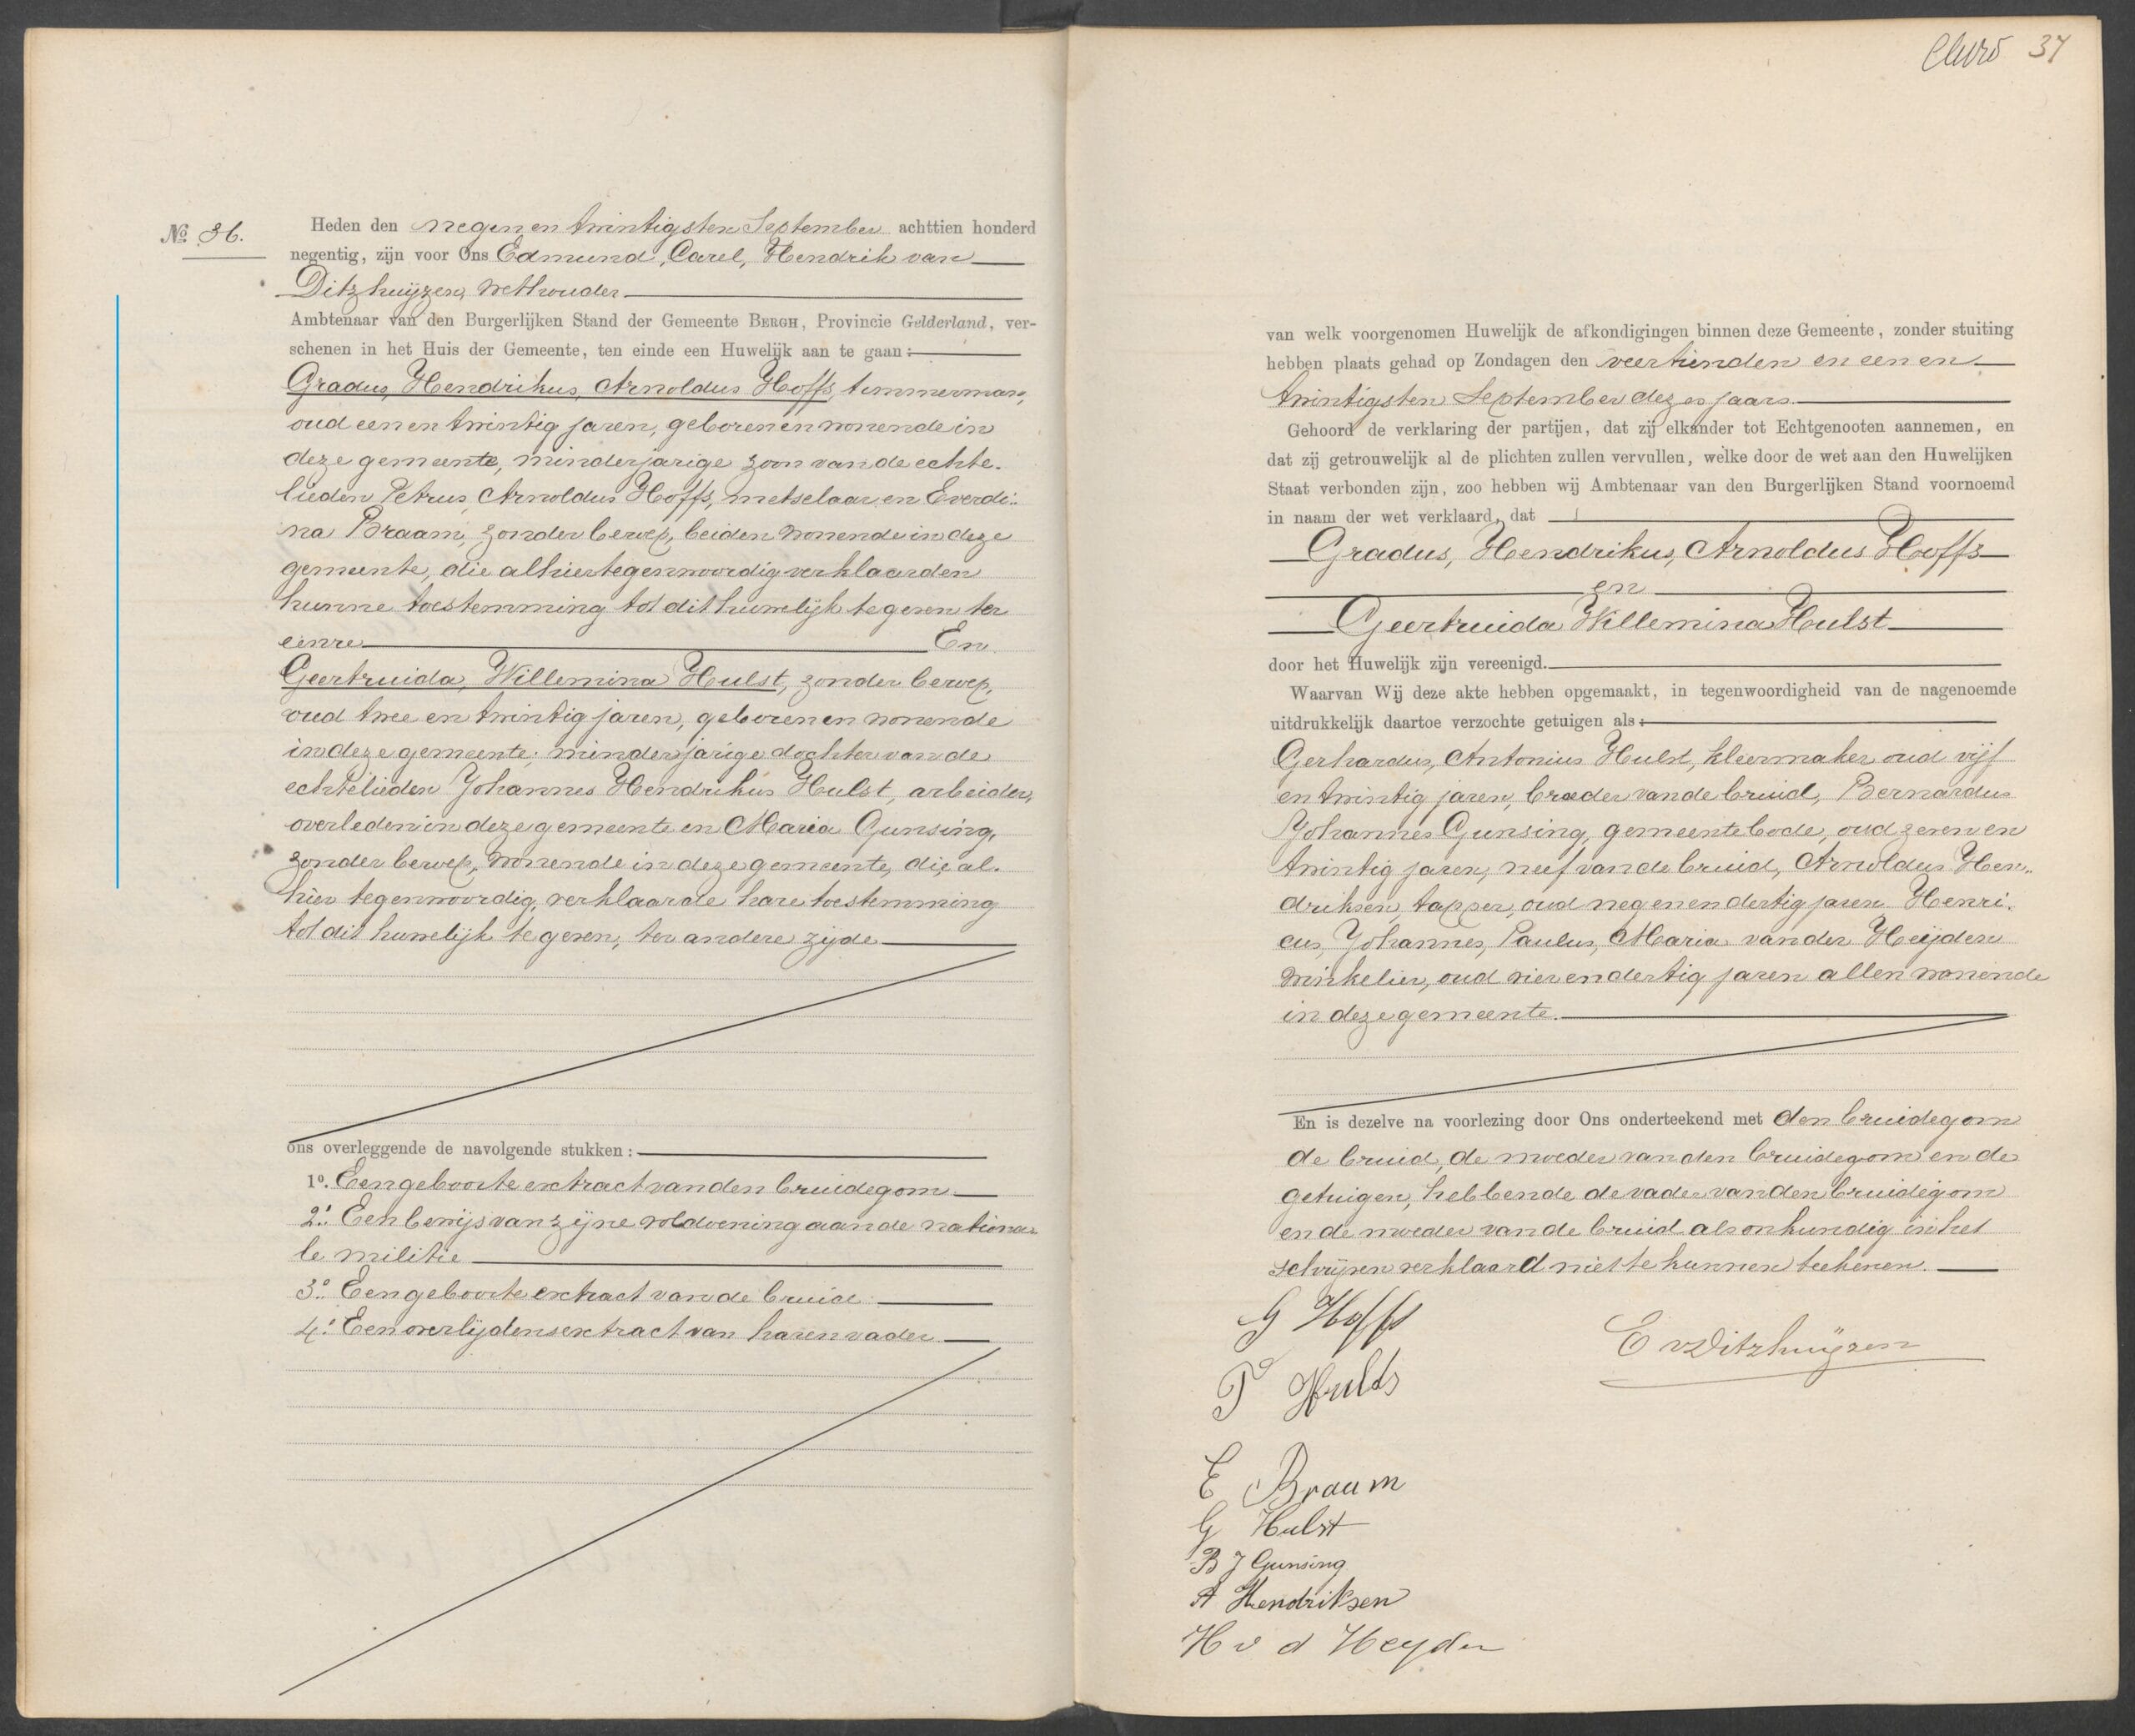 No 36.
Heden den negen en twintigsten September achttien honderd
negentig, zijn voor Ons Edmund, Carel, Hendrik van
Ditzhuijzen, wethouder
Ambtenaar van den Burgerlijken Stand der Gemeente BERGH, Provincie Gelderland, ver-
schenen in het Huis der Gemeente, ten einde een Huwelijk aan te gaan:
Gradus, Hendrikus, Arnoldus Hoffs, timmerman,
oud een en twintig jaren, geboren en wonende in
deze gemeente, minderjarige zoon van de echte-
lieden Petrus, Arnoldus Hoffs, metselaar en Everdi-
na Braam, zonder beroep, beiden wonende in deze
gemeente, die alhier tegenwoordig verklaarden
hunne toestemming tot dit huwelijk te geven ter
eenre En
Geertruida, Willemina Hulst, zonder beroep,
oud twee en twintig jaren, geboren en wonende
in deze gemeente, minderjarige dochter van de
echtelieden Johannes Hendrikus Hulst, arbeider,
overleden in deze gemeente en Maria Gunsing,
zonder beroep, wonende in deze gemeente, die, al-
hier tegenwoordig, verklaarde hare toestemming
tot dit huwelijk te geven, ter andere zijde
ons overleggende de navolgende stukken:
1o. Een geboorte extract van den bruidegom
2o. Een bewijs van zijne voldoening aan de nationa-
le militie
3o. Een geboorte extract van de bruid
4o. Een overlijdensextract van haren vader
37
van welk voorgenomen Huwelijk de afkondigingen binnen deze Gemeente, zonder stuiting
hebben plaats gehad op Zondagen den veertienden en een en
twintigsten September dezes jaars.
Gehoord de verklaring der partijen, dat zij elkander tot Echtgenooten aannemen, en
dat zij getrouwelijk al de plichten zullen vervullen, welke door de wet aan den Huwelijken
Staat verbonden zijn, zoo hebben wij Ambtenaar van den Burgerlijken Stand voornoemd
in naam der wet verklaard, dat
Gradus, Hendrikus, Arnoldus Hoffs
en
Geertruida Willemina Hulst
door het Huwelijk zijn vereenigd.
Waarvan Wij deze akte hebben opgemaakt, in tegenwoordigheid van de nagenoemde
uitdrukkelijk daartoe verzochte getuigen als:
Gerhardus, Antonius Hulst, kleermaker oud vijf
en twintig jaren, broeder van de bruid, Bernardus
Johannes Gunsing, gemeentebode, oud zeven en
twintig jaren, neef van de bruid, Arnoldus Hen-
driksen, tapper, oud negen en dertig jaren Henri-
cus, Johannes, Paulus, Maria van der Heijden
winkelier, oud vier en dertig jaren allen wonende
in deze gemeente.
En is dezelve na voorlezing door Ons onderteekend met den bruidegom
de bruid, de moeder van den bruidegom en de
getuigen, hebbende de vader van den bruidegom
en de moeder van de bruid als onkundig in het
schrijven verklaard niet te kunnen teekenen.
G Hoffs
E v Ditzhuijzen
T Hulds
E Braam
G Hulst
B J Gunsing
A Hendriksen
H v d Heyden